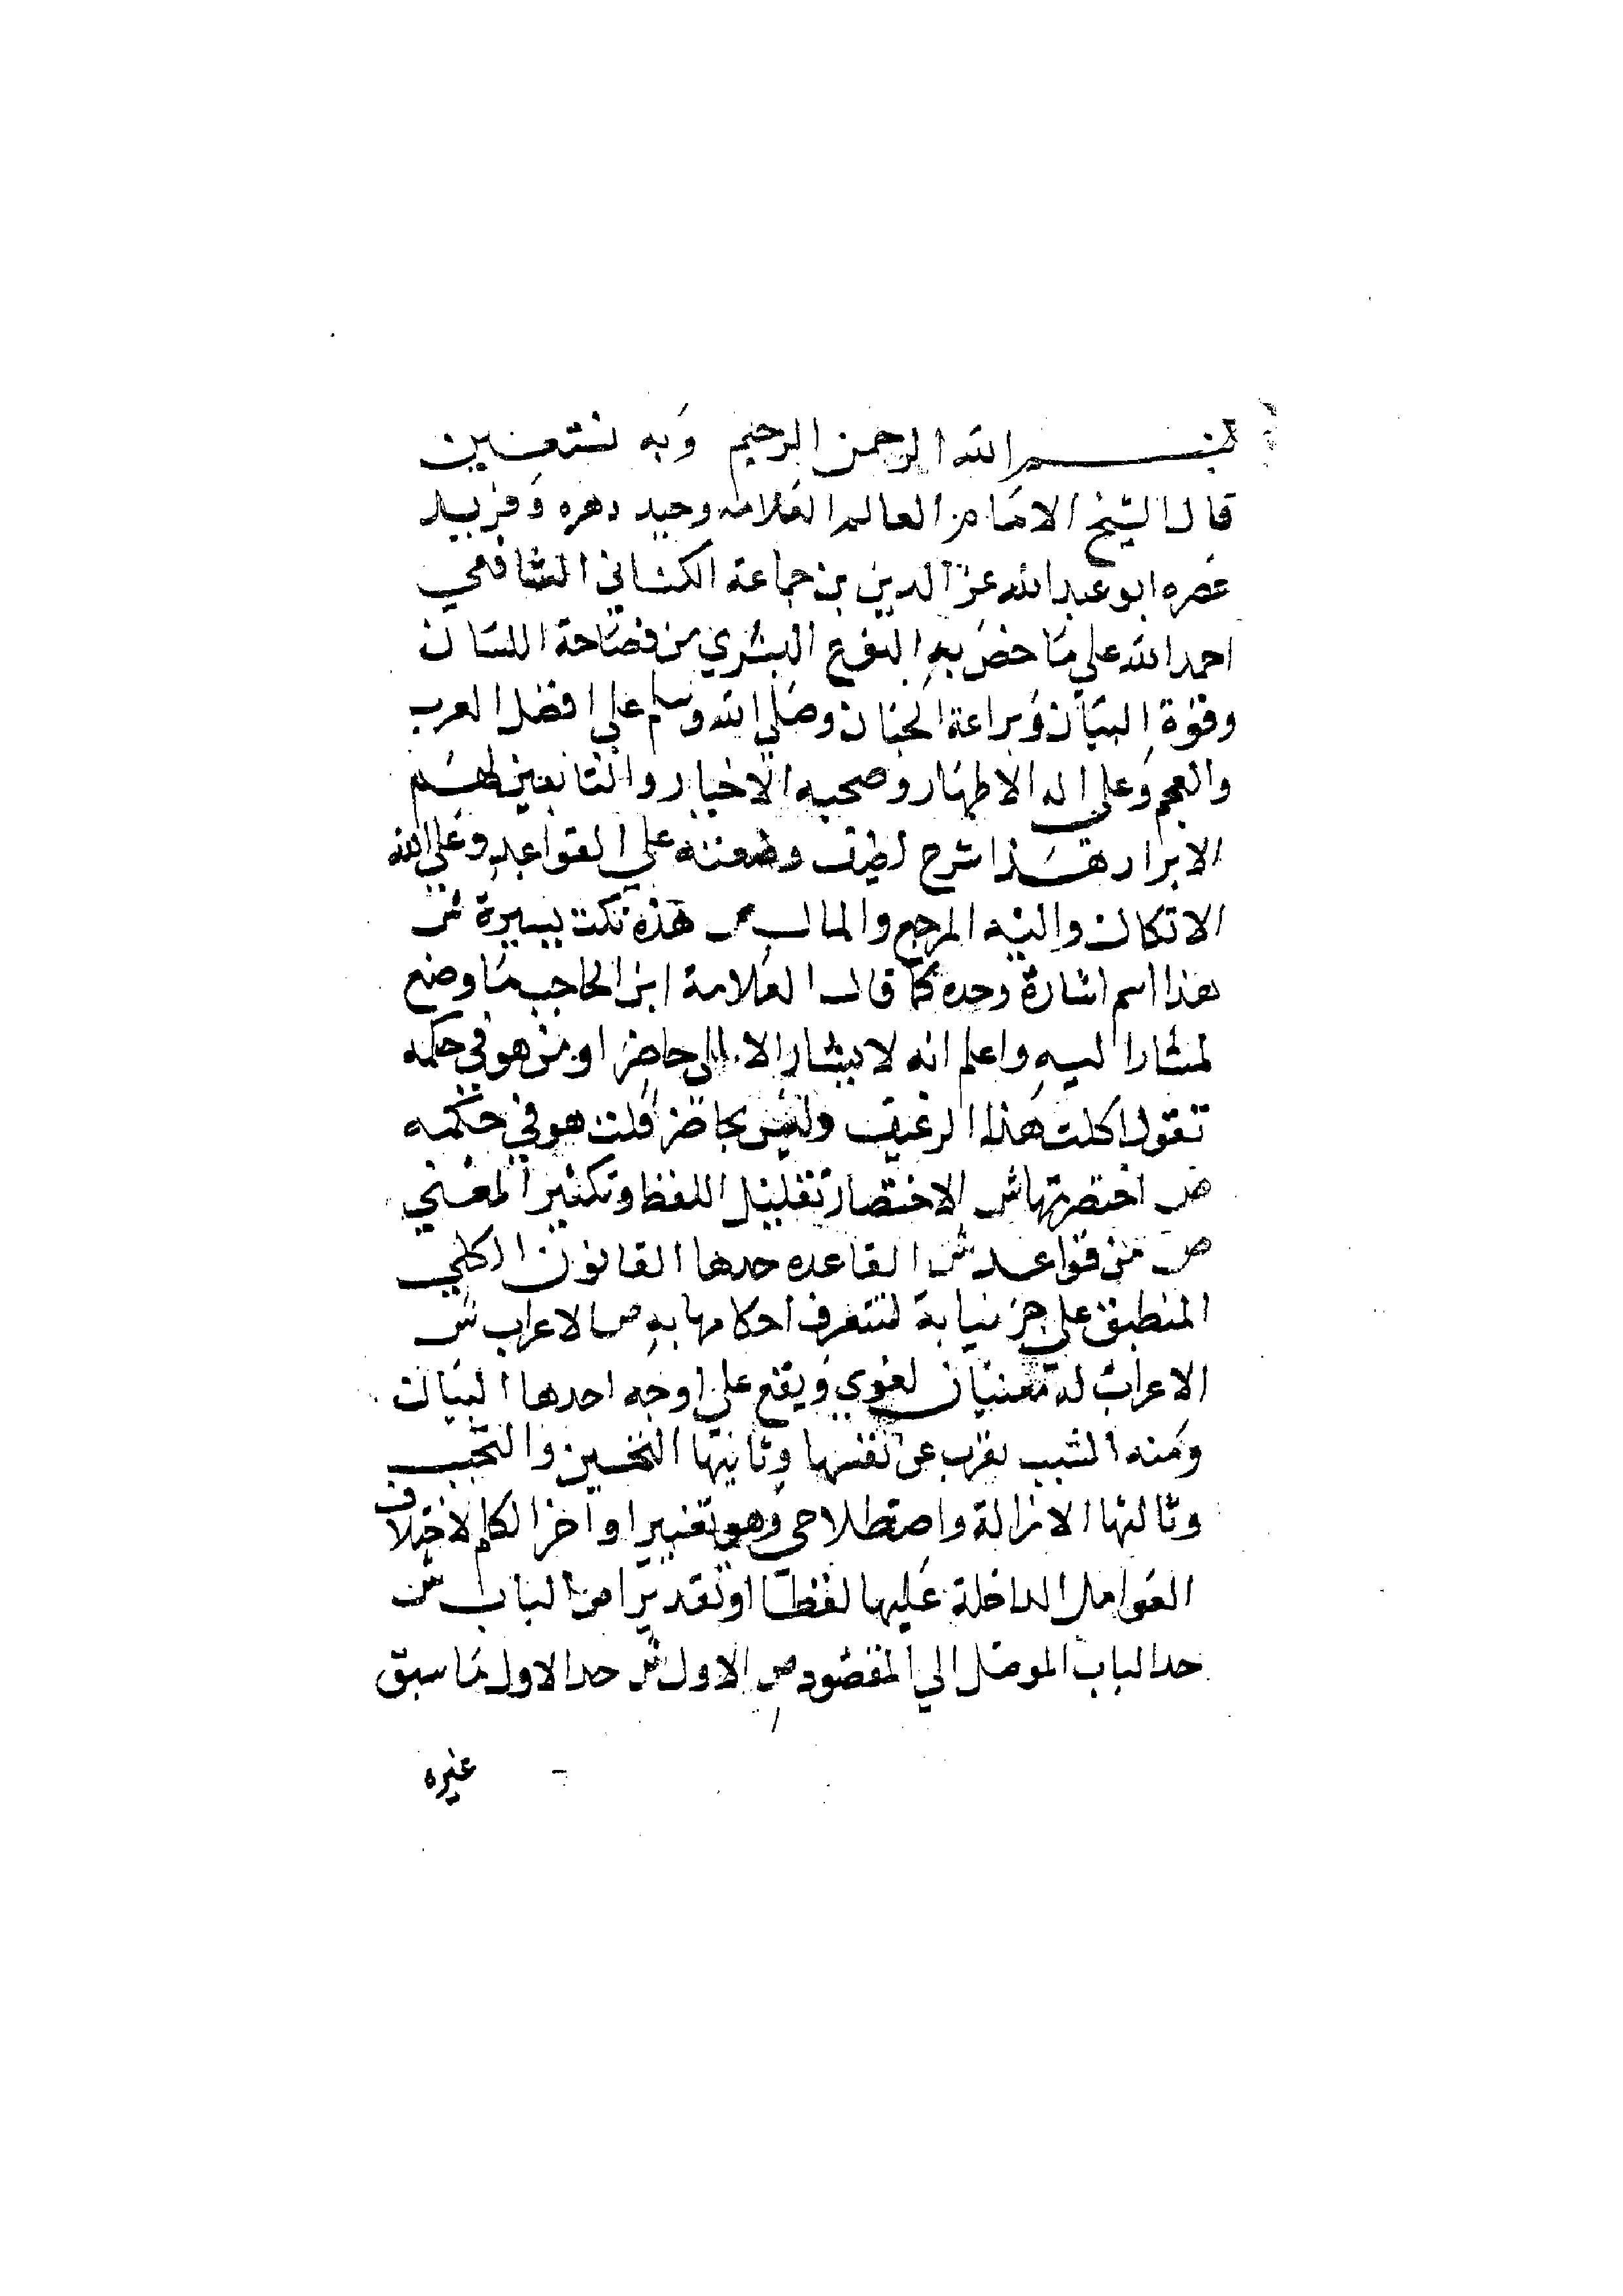 بسم الله الرحمن الرحيم وبه نستعين
قال الشيخ الامام العالم العلامه وحيد دهره وفريد
عصره ابو عبد الله عز الدين بن جماعة الكناني الشافعي
احمد الله علي ما خص به النوع البشري من فصاحة اللسان
وقوة البيان وبراعة الجنان وصلي الله وسلم علي افضل العرب
والعجم وعلي اله الاطهار وصحبه الاخيار والتابعين لهم
الابرار هذا شرح لطيف وضعته علي القواعد وعلي الله
الاتكال واليه المرجع والمال ص هذه نكت يسيرة ش
هذا اسم اشارة وحده كما قال العلامة ابن الحاجب ما وضع
لمشار اليه واعلم انه لا يشار الا الي حاضر او من هو في حكمه
تقول اكلت هذا الرغيف وليس بحاضر قلت هو في حكمه
ص اختصرتها ش الاختصار تقليل اللفظ وتكثير المعني
ص من قواعد ش القاعده حدها القانون الكلي
المنطبق علي جزئياته لتتعرف احكامها به ص الاعراب ش
الاعراب له معنيان لغوي ويقع علي اوجه احدها البيان
ومنه الثيب تعرب عن نفسها وثانيها التحسين والتحبب
وثالثها الازالة واصطلاحي وهو تغيير اواخر الكلم لاختلاف
العوامل الداخلة عليها لفظا او تقديرا ص الباب ش
حد الباب الموصل الي المقصود ص الاول ش حد الاول ما سبق
غيره